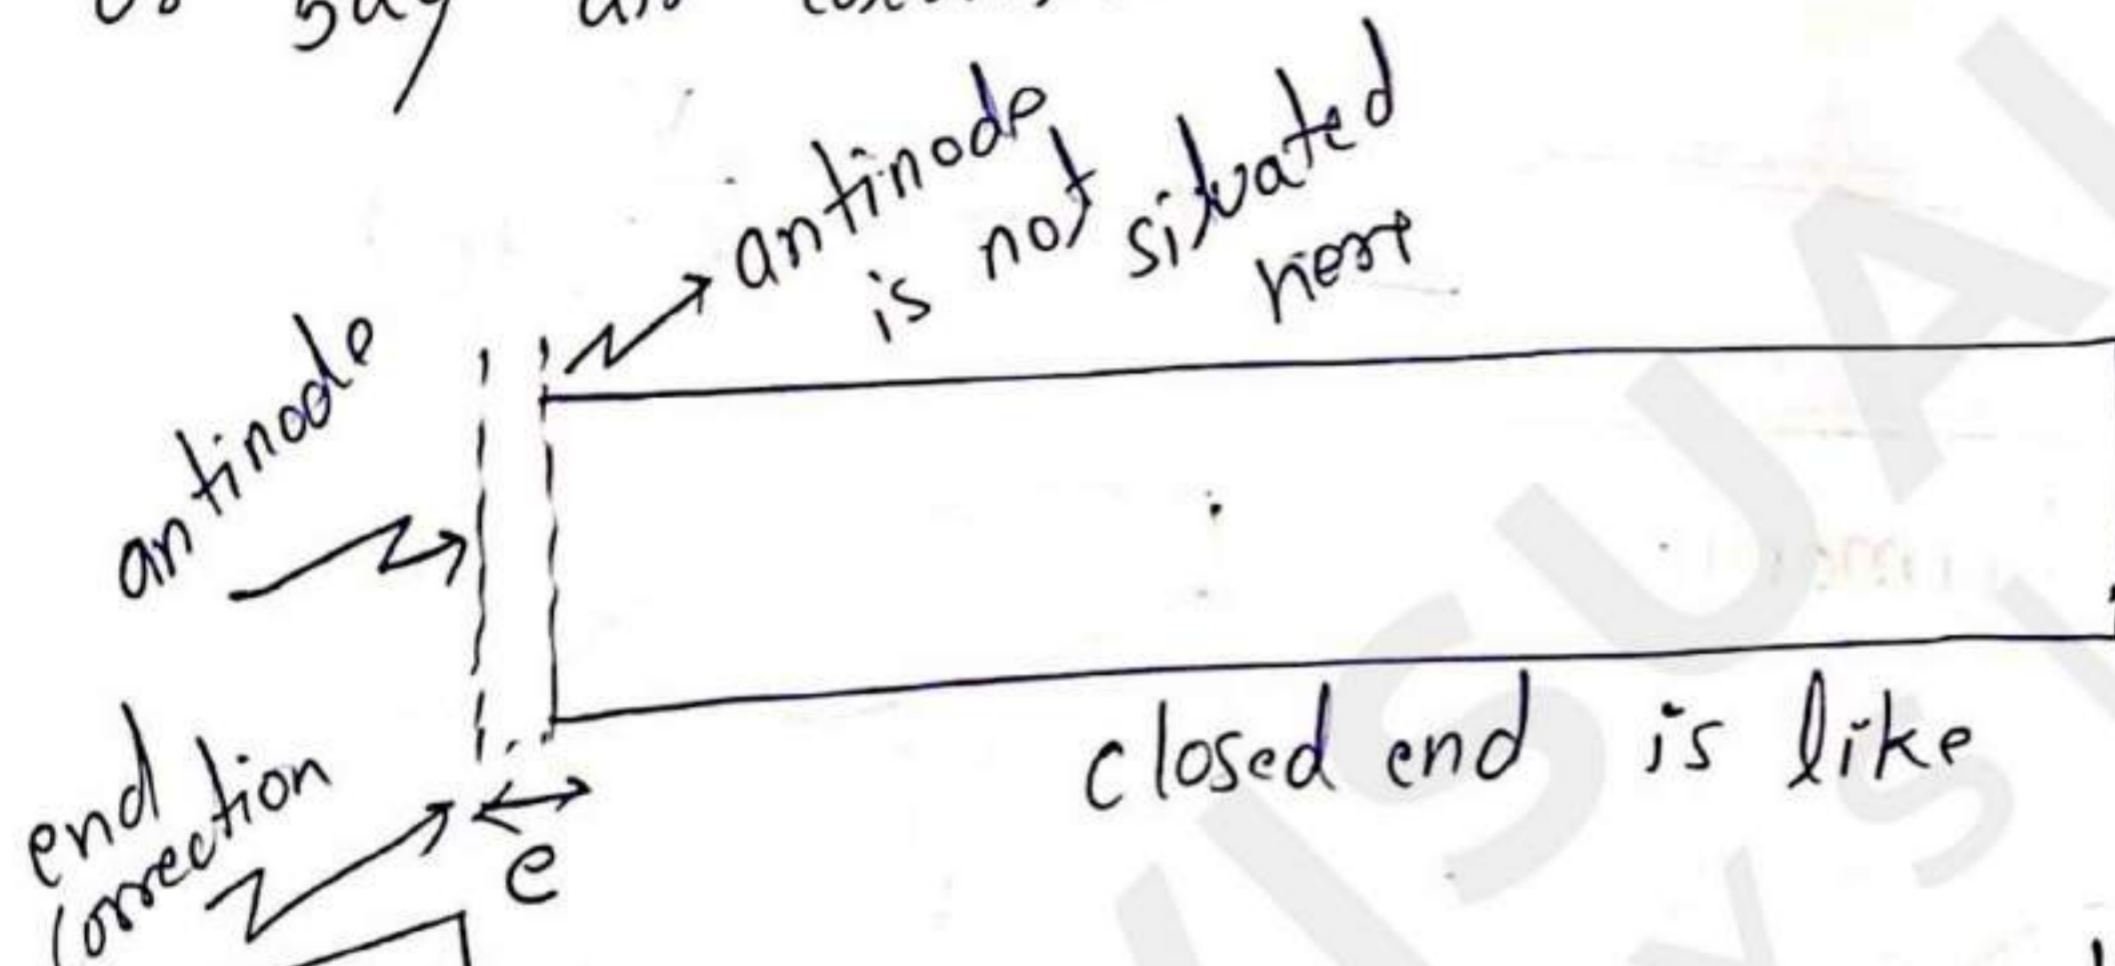 say
antinode
is not situated
here
antinode
closed end is like
end
correction
e
VISUAL